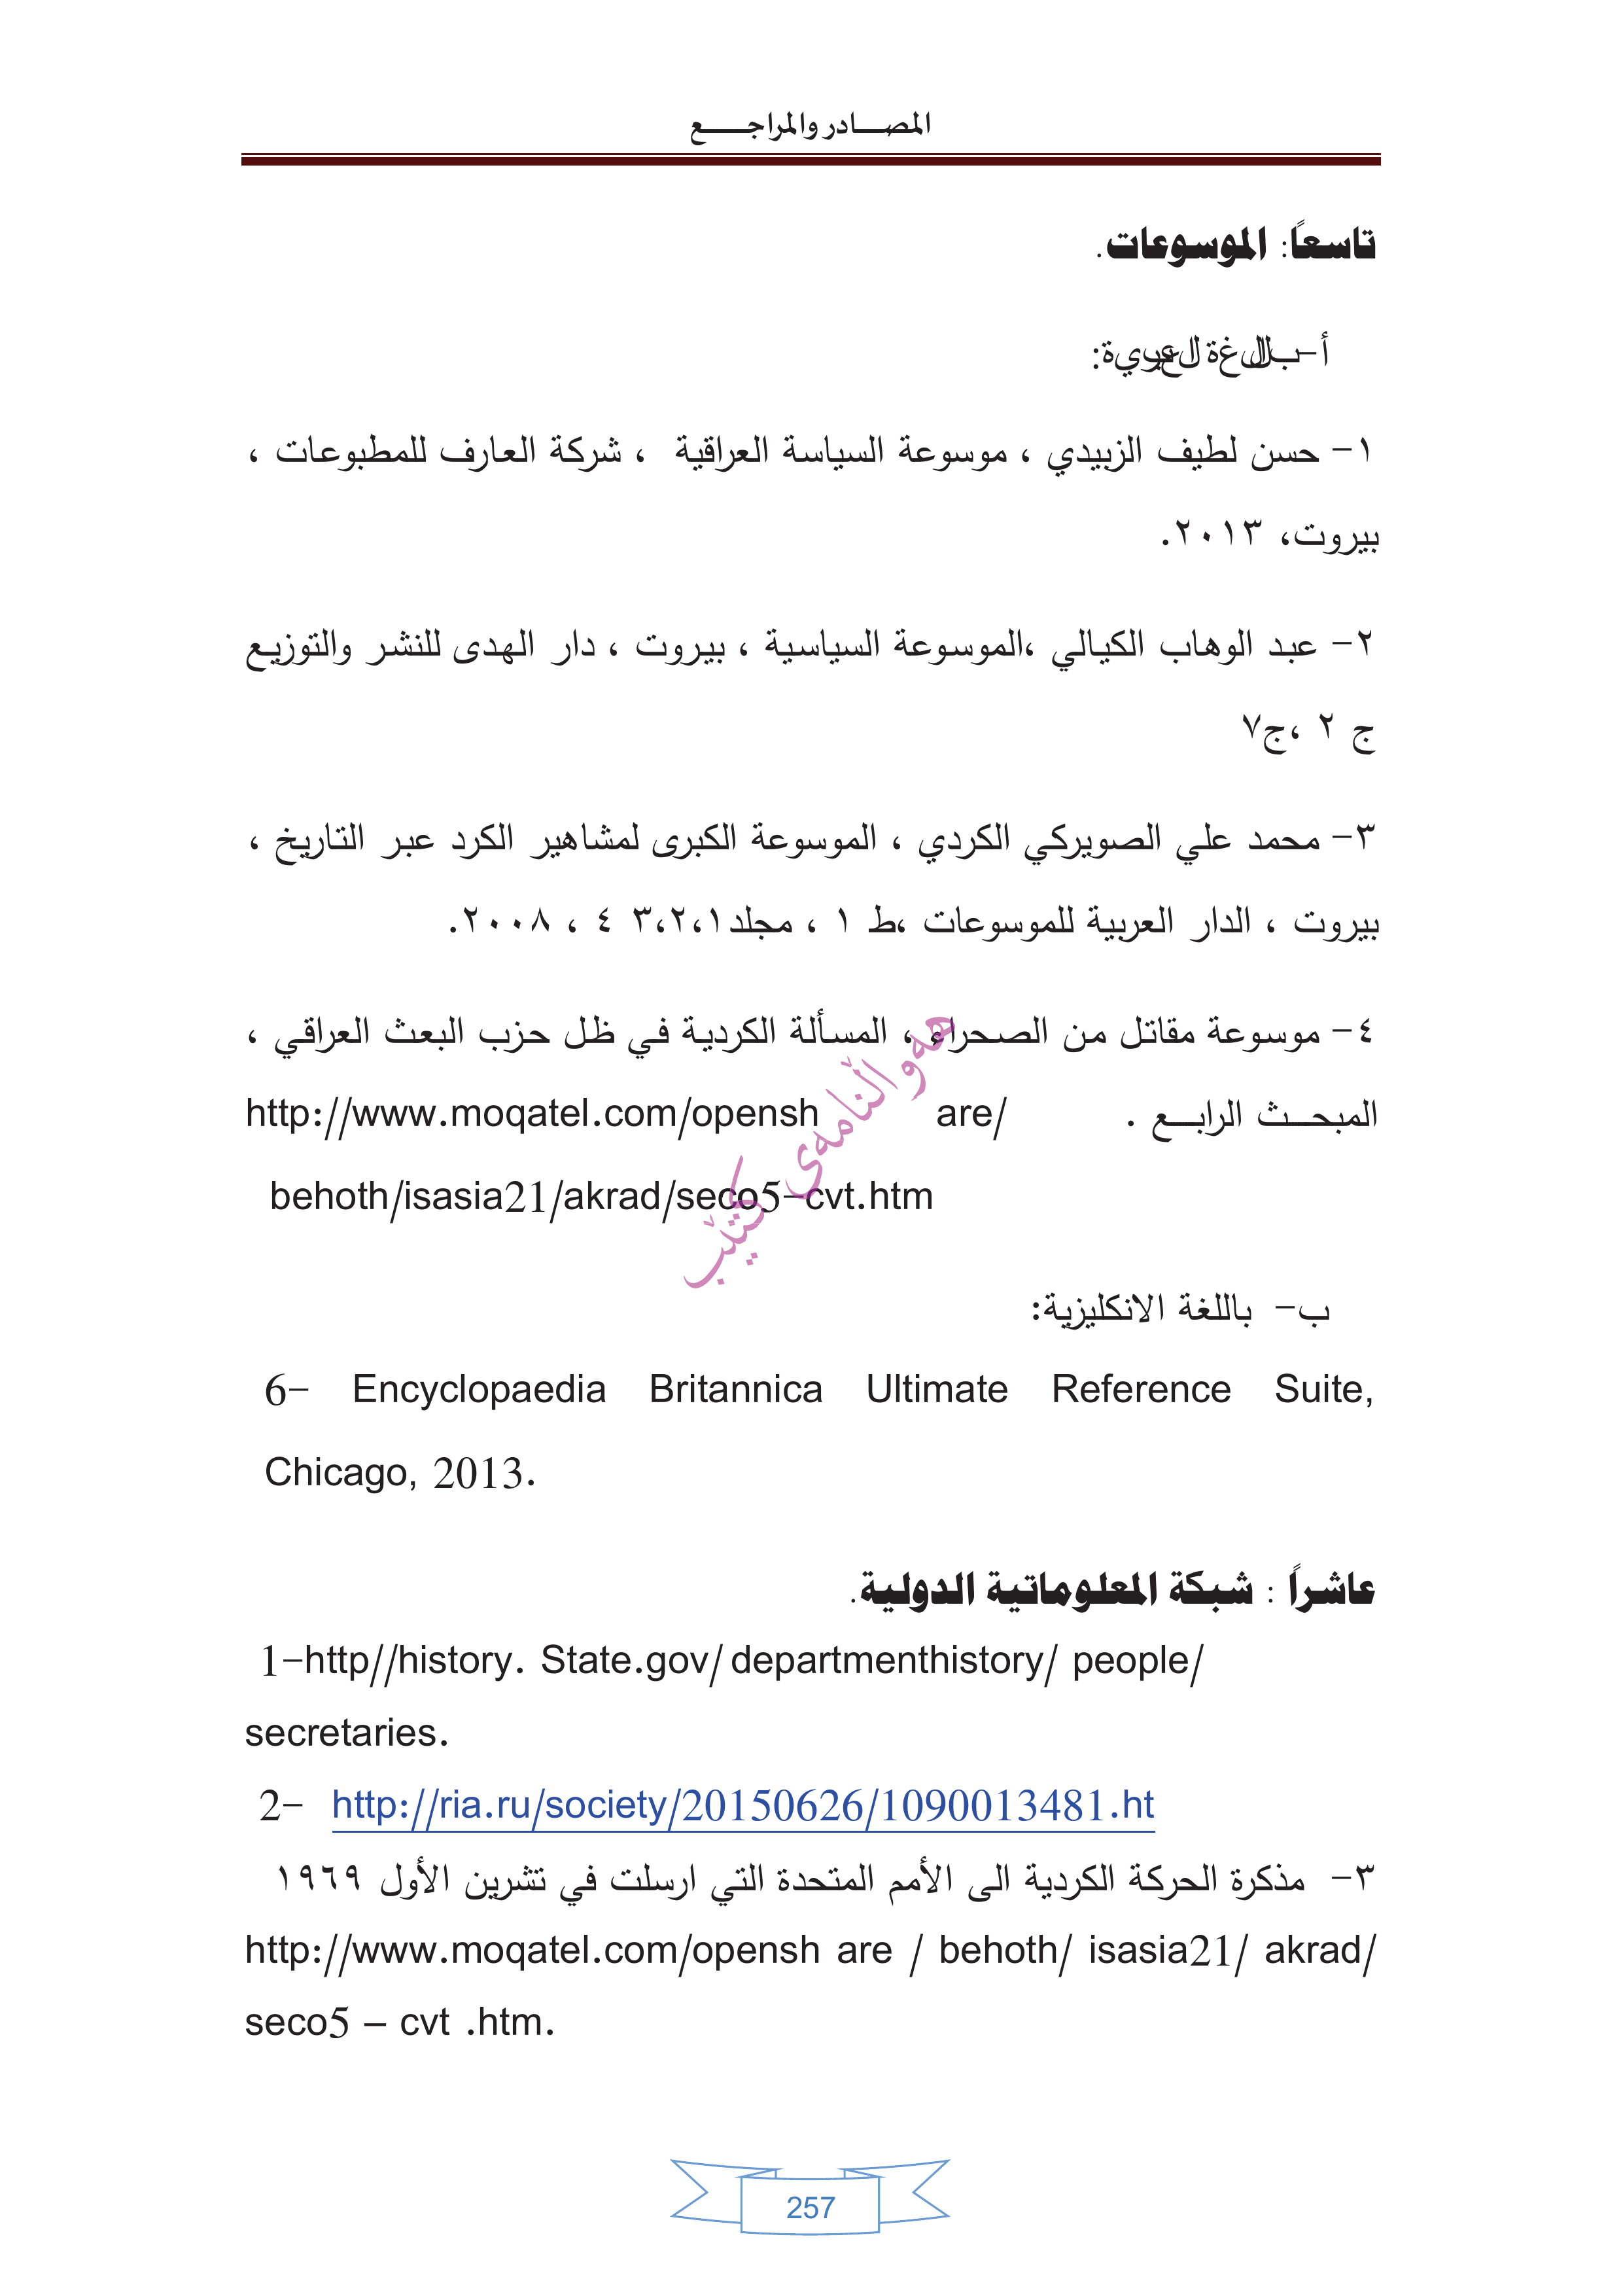 المصادر والمراجع
تاسعاً: الموسوعات.
أ- باللغة العربية:
١- حسن لطيف الزبيدي ، موسوعة السياسة العراقية ، شركة العارف للمطبوعات ،
بيروت، ٢٠١٣.
٢- عبد الوهاب الكيالي ،الموسوعة السياسية ، بيروت ، دار الهدى للنشر والتوزيع
ج ٢ ،ج٧
٣- محمد علي الصويركي الكردي ، الموسوعة الكبرى لمشاهير الكرد عبر التاريخ ،
بيروت ، الدار العربية للموسوعات ،ط ١ ، مجلد٣،٢،١ ٤ ، ٢٠٠٨.
٤- موسوعة مقاتل من الصحراء ، المسألة الكردية في ظل حزب البعث العراقي ،
المبحث الرابع . http://www.moqatel.com/opensh are/
behoth/isasia21/akrad/seco5-cvt.htm
هەواڵنامەی کتێب
ب- باللغة الانكليزية:
6- Encyclopaedia Britannica Ultimate Reference Suite,
Chicago, 2013.
عاشراً : شبكة المعلوماتية الدولية.
1-http//history. State.gov/ departmenthistory/ people/
secretaries.
2- http://ria.ru/society/20150626/1090013481.ht
٣- مذكرة الحركة الكردية الى الأمم المتحدة التي ارسلت في تشرين الأول ١٩٦٩
http://www.moqatel.com/opensh are / behoth/ isasia21/ akrad/
seco5 – cvt .htm.
257